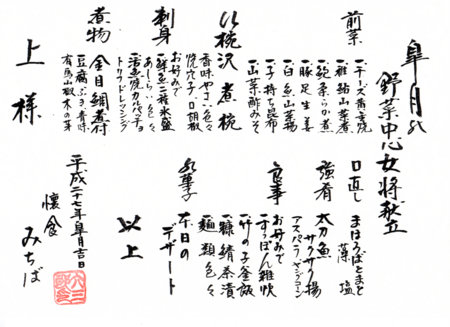 皐月の
野菜中心女将献立
前菜
一チーズ黄金焼
一稚鮎山菜煮
一鮑柔らか煮
一豚足生姜
一白魚山菜揚
一子持ち昆布
一山菜酢みそ
八椀沢煮椀
香味やさい色々
焼穴子 口胡椒
刺身
お好みで
一鮮魚二種氷盛
あしらい色々
一活魚焼カルパッチョ
トリュフドレッシング
煮物
金目鯛煮付
豆腐ふき香味
有馬山椒木の芽
上様
口直し
まほろばとまと
藻塩
強肴
太刀魚
サクサク揚
アスパラヤングコーン
食事
お好みで
一すっぽん雑炊
一竹の子釜飯
一糠鯖茶漬
一麺類色々
水菓子
本日の
デザート
以上
平成二十七年皐月吉日
懐食
みちば